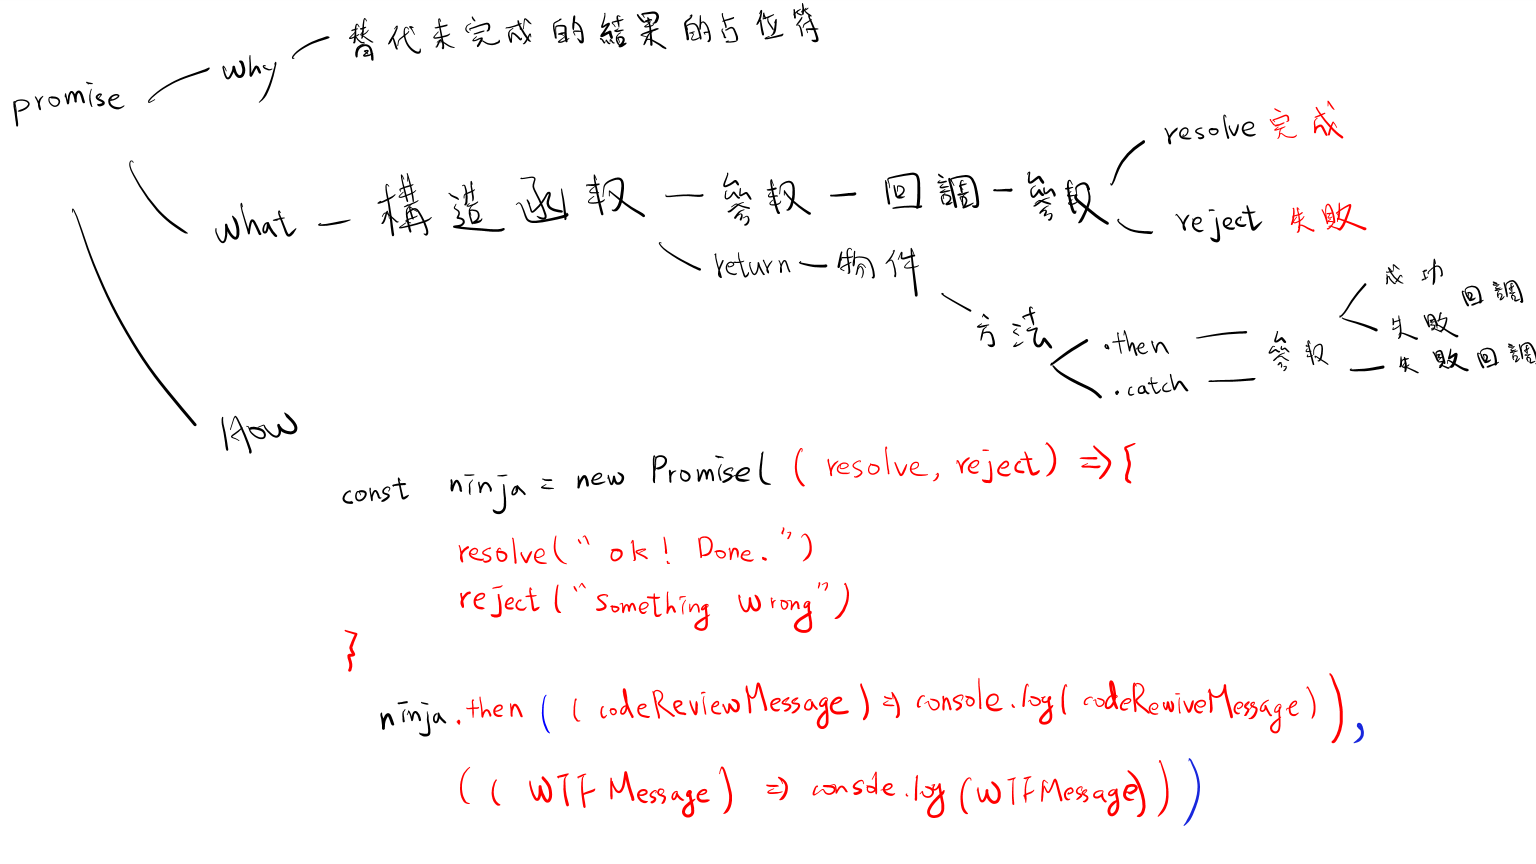 promise
why
替代未完成的結果的占位符
what
構造函數
參數
回調
參數
resolve 完成
reject 失敗
return
物件
方法
.then
.catch
參數
成功
失敗
回調
失敗回調
How
const ninja = new Promise( ( resolve, reject) => {
resolve("ok! Done.")
reject("Something Wrong")
}
ninja.then ( ( codeReviewMessage ) => console.log( codeRewiveMessage ) ),
( ( WTFMessage ) => console.log (WTFMessage) ) )